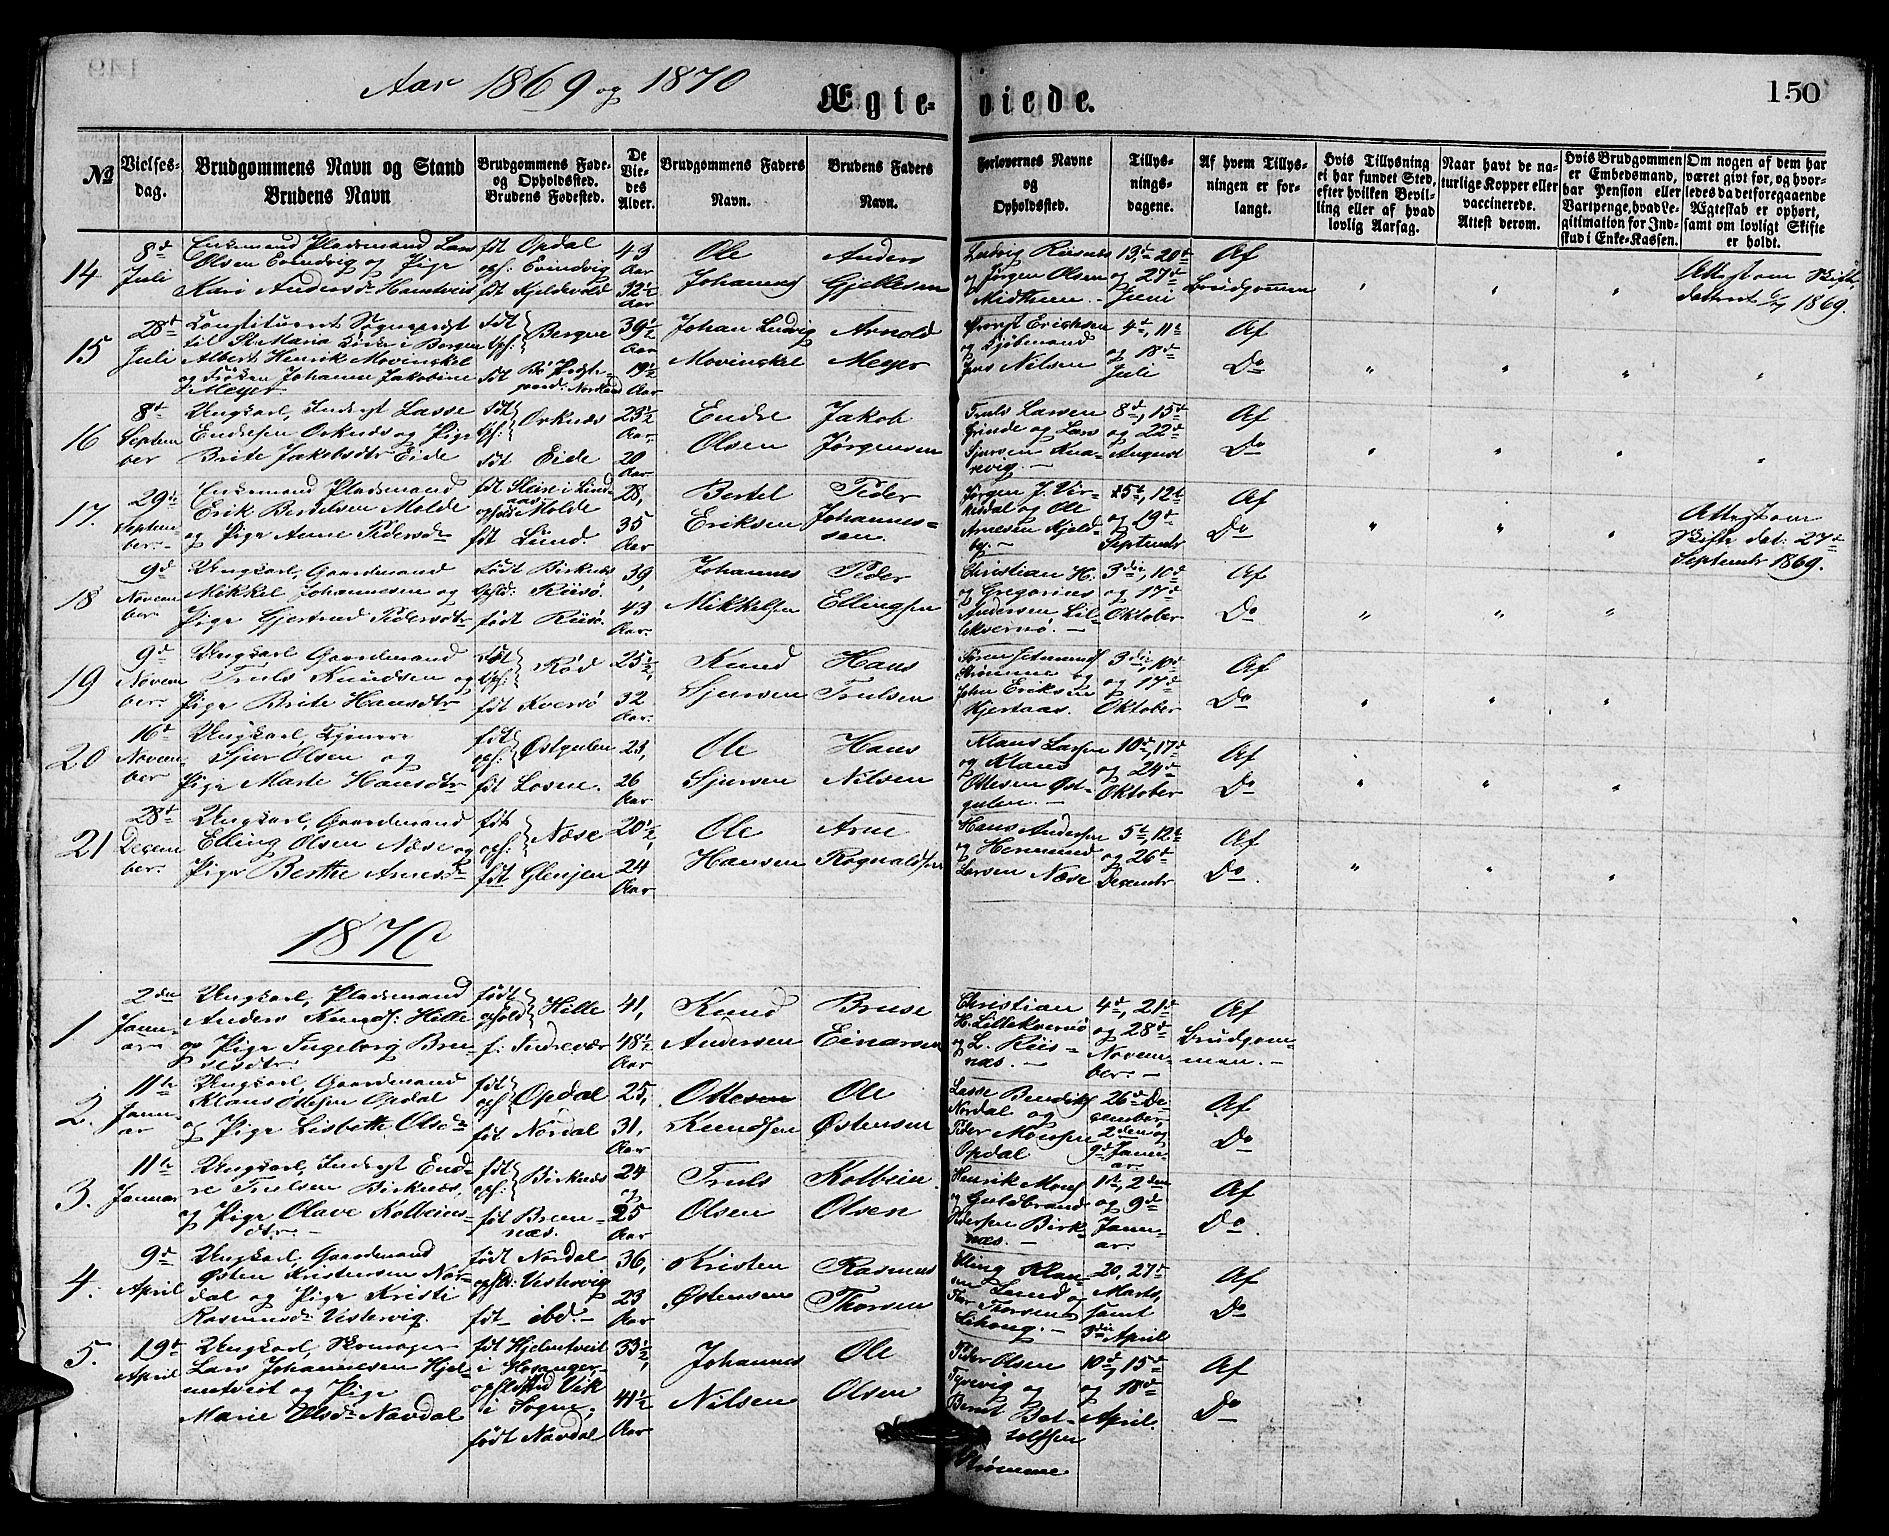 Aar 1869 og 1870
Ægte-
viede.
150
No
Vielses-
dag.
Brudgommens Navn og Stand
Brudens Navn
Brudgommens Føde-
og Opholdssted.
Brudens Fødested.
De
Vie-
des
Alder.
Brudgommens Faders
Navn.
Brudens Faders
Navn.
Forlovernes Navne
og
Opholdssted.
Tillys-
nings-
dagene.
Af hvem Tillys-
ningen er for-
langt.
Hvis Tillysning
ei har fundet Sted,
efter hvilken Bevil-
ling eller af hvad
lovlig Aarsag.
Naar havt de na-
turlige Kopper eller
vaccinerede.
Attest derom.
Hvis Brudgommen
er Embedsmand,
har Pension eller
Vartpenge, hvad Le-
gitimation for Ind-
skud i Enke-Kassen.
Om nogen af dem har
været givt før, og hvor-
ledes da det foregaaende
Ægteskab er ophørt,
samt om lovligt Skifte
er holdt.
14
8de
Juli
Enkemand Pladsmand Lars
Olsen Evindvig og Pige
Kari Andersdr
føt Opdal
oph: Evindvig
føt Kjeldevold
43
Aar
32½
Aar
Ole
Johannes
Anders
Gjellesen
Ludvig Risnes
og Jørgen Olsen
Midtun
13, 20de
og 27de
Juni
Af
Brudgommen
Attest om Skifte
dateret 1869.
15
28de
Juli
Constitueret Sognepræst
til St Maria Kirke i Bergen
Albert Henrik Mowinckel
og Frøken Johanne Jakobine
Meyer
Føt
Oph: Bergen
Føt Bø Præste-
gaard: Nordland
39½
Aar
19½
Aar
Johan Ludvig
Mowinckel
Arnold
Meyer
Provst Erichsen
og
Jens Nilsen
4de, 11te
og 18de
Juli
Af
Do
16
8de
Septem
ber
Ungkarl, Inderst Lasse
Endresen Orknæs og Pige
Brite Jakobsdtr Eide
Føt
Oph: Orknæs
føt Eide
23½
Aar
20
Aar
Endre
Olsen
Jakob
Jørgensen
Truls Larsen
Grinde og Lars
Sjursen Kna-
revig.
8de, 15de
og 22de
August
Af
Do
17.
29de
Septem-
ber.
Enkemand Pladsmand
Erik Bertelsen Molde
og Pige Anne Pedersdr
føt i Lind-
aas
oph: Molde
føt Lund.
28,
35
Aar
Bertel
Eriksen
Peder
Johannes-
sen.
Jørgen J. Vir-
kesdal og Ole
Arnesen Kjeld-
by.
5te, 12te
og 19de
Septembr
Af
Do
Attest om
Skifte dat: 27de
Septembr 1869.
18
9de
Novem
ber
Ungkarl, Gaardmand
Mikkel Johannesen og
Pige Gjertrud Pedersdtr
Født Birknes
Oph: Riisø.
født Riisø.
39,
43
Aar.
Johannes
Mikkelsen
Peder
Ellingsen
Christian H.
og Gregorius
Andersen Lil-
lekvernø.
3die, 10de
og 17de
Oktober
Af
Do
19
9de
Novem
ber.
Ungkarl Gaardmand
Truls Knudsen og
Pige Brite Hansdtr
Føt
Oph: Rød
føt Kversø
25½,
32
Aar.
Knud
Sjursen
Hans
Trulsen
Strømme og
John Eriksen
Hjertaas.
3die, 10de
og 17de
Oktober
Af
Do
20
16de
Novem
ber
Ungkarl, Tjener
Sjur Olsen og
Pige Marte Hansdtr
føt
oph: Østgulen
føt Losne.
23,
26
Aar
Ole
Sjursen
Hans
Nilsen
Klaus Larsen
og Klaus
Ottesen Øst-
gulen.
10de, 17de
og 24de
Oktober
Af
Do
21
28de
Decem
ber.
Ungkarl, Gaardmand
Elling Olsen Næse og
Pige Berthe Arnesdr
føt
oph: Næse
føt Glenjen
20½,
24
Aar
Ole
Hansen
Arne
Rognaldsen
Hans Andersen
og Hermund
Larsen Næse
5te, 12te
og 26de
Decembr
Af
Do.
1870
1
2den
Janu-
ar
Ungkarl, Pladsmand
Anders Knuds: Hille
og Pige Ingeborg Bru-
sesdtr.
født
ophold Hille
f: Indrevær
41,
48½
Aar
Knud
Andersen
Bruse
Einarsen
Christian
H. Lillekvernø
og L. Riis-
næs.
4de, 21de
og 28de
Novem-
ber.
Af
Brudgom-
men.
2.
11te
Janu-
ar
Ungkarl, Gaardmand
Klaus Ottesen Opdal
og Pige Lisbeth Olsdr
født
oph: Opdal
føt Nordal
25,
31,
Aar
Ottesen
Knudsen
Ole
Østensen
Lasse Bendiks
Nordal og
Peder Monsen
Opdal
26de De-
cember,
2den og
9de Janu-
ar.
Af
Do
3.
11te
Januar
Ungkarl, Inderst End-
re Trulsen Birknæs,
og Pige Olave Kolbeins-
dtr.
føt
oph: Birknæs
føt Brem-
næs.
24
og
25
Aar
Truls
Olsen
Kolbein
Olsen
Henrik Mons
og Guldbrand
Pedersen Birk-
næs.
1te, 2den
og 9de
Janu-
ar.
Af
Do.
4.
9de
April
Ungkarl, Gaardmand
Østen Kristensen Nor-
dal og Pige Kristi
Rasmusdr Vestervig.
født Nordal
ophd: Vestervig
føt ibd.
36,
23
Aar
Kristen
Østensen
Rasmus
Thorsen
Elling Klau-
sen Lund og
Thor Thorsen
20, 27de
Marts,
samt
3die April
Af
Do
5.
19de
April
Ungkarl, Skomager
Lars Johannesen Hjel-
mtveit og Pige
Marie Olsdr Navdal
føt Hjelmtveit
i Hosanger
opholdsted Vik
i Sogn,
født Navdal
33½,
41½
Aar
Johannes
Nilsen
Ole
Olsen
Peder Olsen
og
Bernt Bot-
tolfsen
Strømme
10de, 15de
og 18de
April.
Af
Do